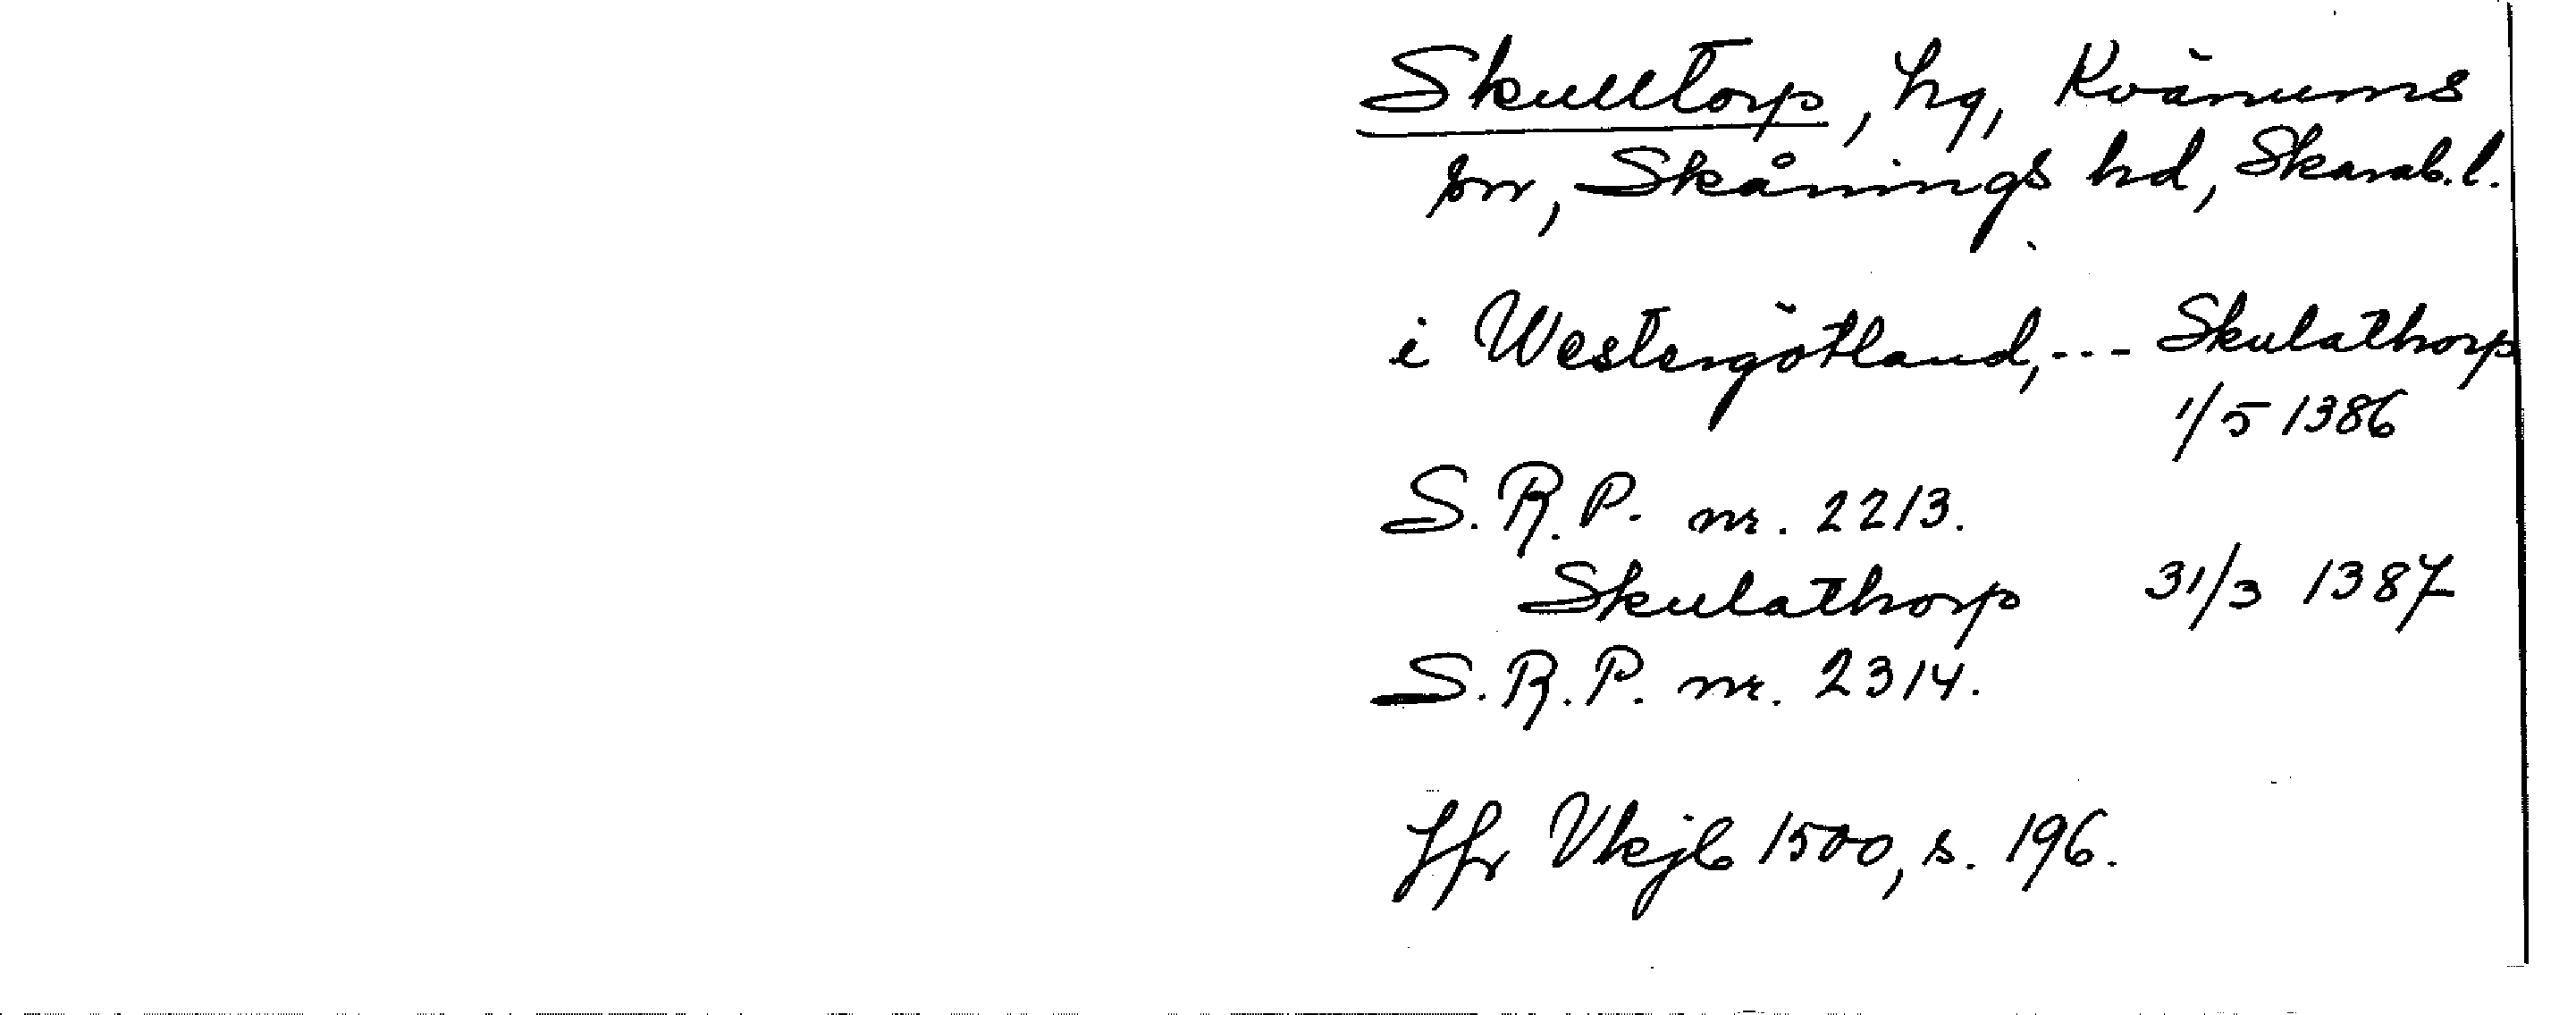 Skulltorp, hg, Kvänums
sn, Skånings hd, Skarab.l.
i Westergötland, --- Skulathorp
1/5 1386
S.R.P. nr. 2213.
Skulathorp 31/3 1387
S.R.P. nr. 2314.
Jfr Vkjb 1500, s. 196.